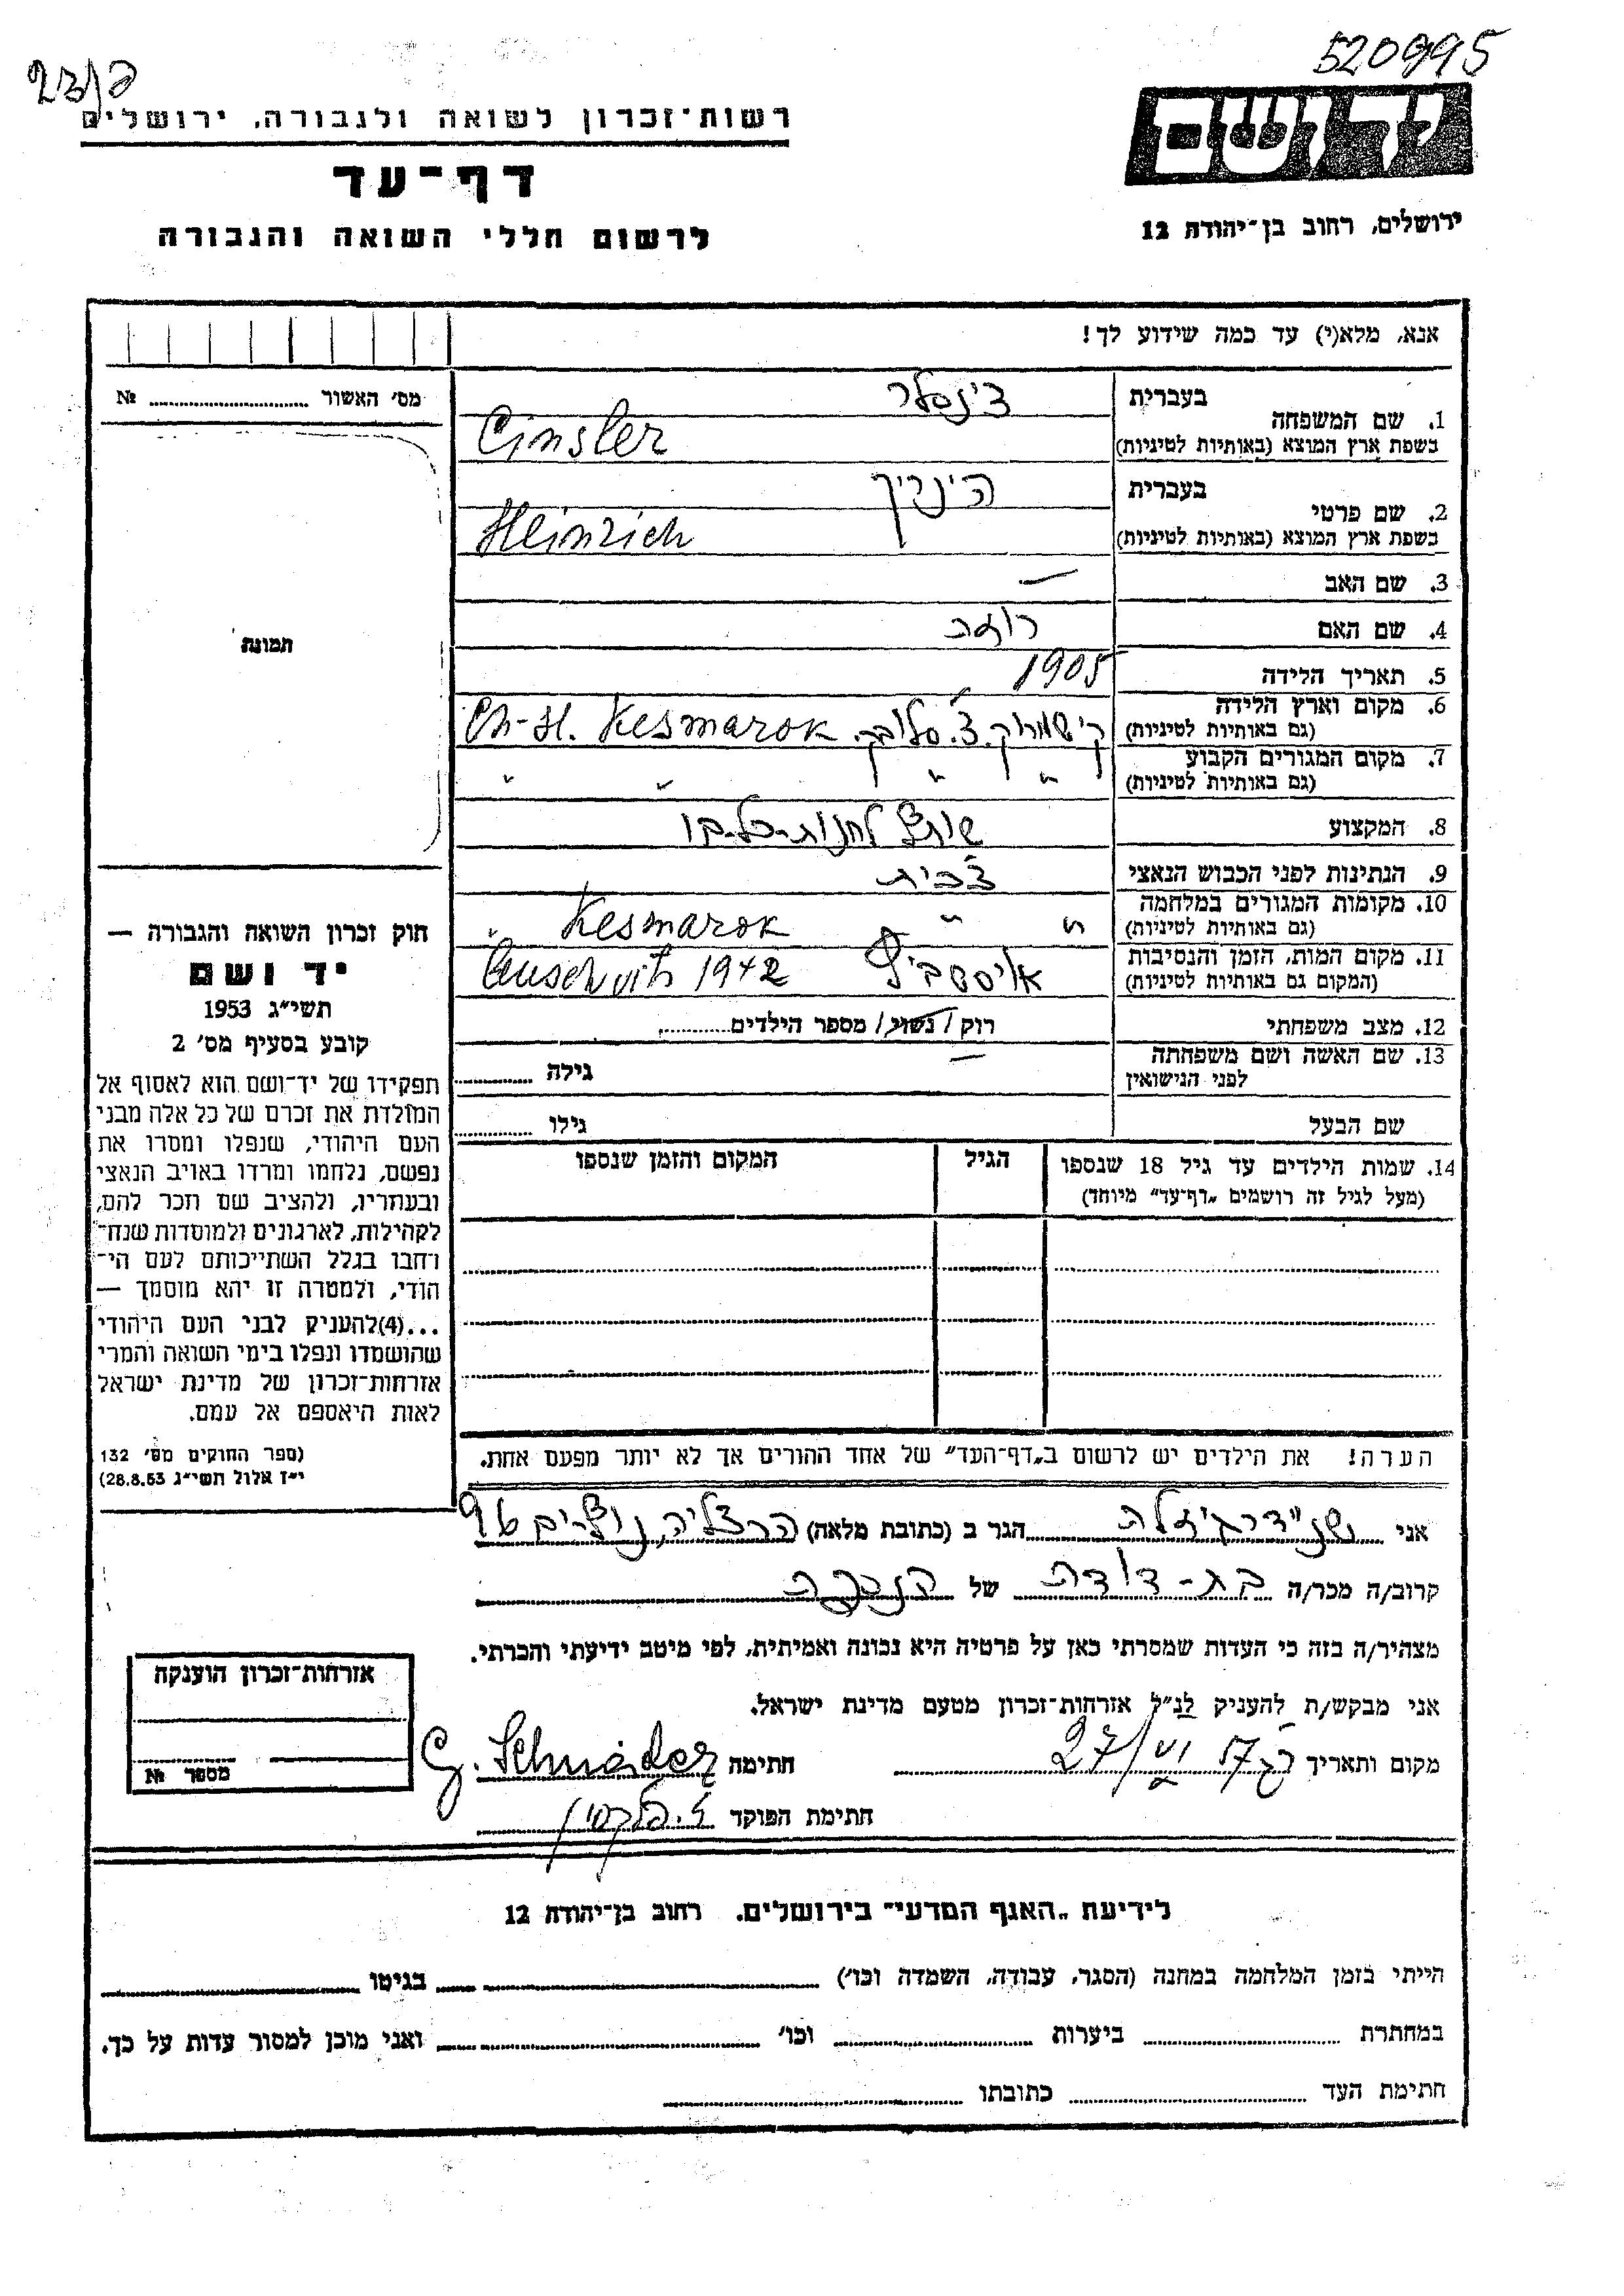 520995
רשות־זכרון לשואה ולגבורה, ירושלים
דף־עד
לרשום חללי השואה והגבורה
יד ושם
ירושלים, רחוב בן־יהודה 12
אנא, מלא(י) עד כמה שידוע לך!
מס׳ האשור ........ №
תמונה
1. שם המשפחה
בעברית צינסלר
בשפת ארץ המוצא (באותיות לטיניות) Cinsler
2. שם פרטי
בעברית הינריך
בשפת ארץ המוצא (באותיות לטיניות) Heinrich
3. שם האב —
4. שם האם רוזה
5. תאריך הלידה 1905
6. מקום וארץ הלידה
(גם באותיות לטיניות) קישמרוק. צ׳. סלובק. Kesmarok
7. מקום המגורים הקבוע
(גם באותיות לטיניות) " " " "
8. המקצוע שותף לחנות-כל-בו
9. הנתינות לפני הכבוש הנאצי צ׳כית
10. מקומות המגורים במלחמה
(גם באותיות לטיניות) " " Kesmarok "
11. מקום המות, הזמן והנסיבות
(המקום גם באותיות לטיניות) אוישביץ Auschvith 1942
12. מצב משפחתי רוק / נשוי / מספר הילדים........
13. שם האשה ושם משפחתה
לפני הנישואין — גילה ........
שם הבעל גילו ........
14. שמות הילדים עד גיל 18 שנספו
(מעל לגיל זה רושמים „דף־עד״ מיוחד)
הגיל
המקום והזמן שנספו
הערה! את הילדים יש לרשום ב„דף־העד״ של אחד ההורים אך לא יותר מפעם אחת.
חוק זכרון השואה והגבורה —
יד ושם
תשי״ג 1953
קובע בסעיף מס׳ 2
תפקידו של יד־ושם הוא לאסוף אל
המולדת את זכרם של כל אלה מבני
העם היהודי, שנפלו ומסרו את
נפשם, נלחמו ומרדו באויב הנאצי
ובעוזריו, ולהציב שם וזכר להם,
לקהילות, לארגונים ולמוסדות שנח־
רבו בגלל השתייכותם לעם הי־
הודי, ולמטרה זו יהא מוסמך —
...(4)להעניק לבני העם היהודי
שהושמדו ונפלו בימי השואה והמרי
אזרחות־זכרון של מדינת ישראל
לאות היאספם אל עמם.
(ספר החוקים מס׳ 132
י״ז אלול תשי״ג 28.8.53)
אני שניידר גיזלה הגר ב (כתובת מלאה) הרצליה, נוף-ים 96
קרוב/ה מכר/ה בת-דודה של הנספה
מצהיר/ה בזה כי העדות שמסרתי כאן על פרטיה היא נכונה ואמיתית, לפי מיטב ידיעתי והכרתי.
אני מבקש/ת להעניק לנ״ל אזרחות־זכרון מטעם מדינת ישראל.
מקום ותאריך 27/VI 57 חתימה G. Schneider
חתימת הפוקד
אזרחות־זכרון הוענקה
מספר №
לידיעת „האגף המדעי״ בירושלים, רחוב בן־יהודה 12
הייתי בזמן המלחמה במחנה (הסגר, עבודה, השמדה וכו׳) בגיטו
במחתרת ביערות וכו׳ ואני מוכן למסור עדות על כך.
חתימת העד כתובתו